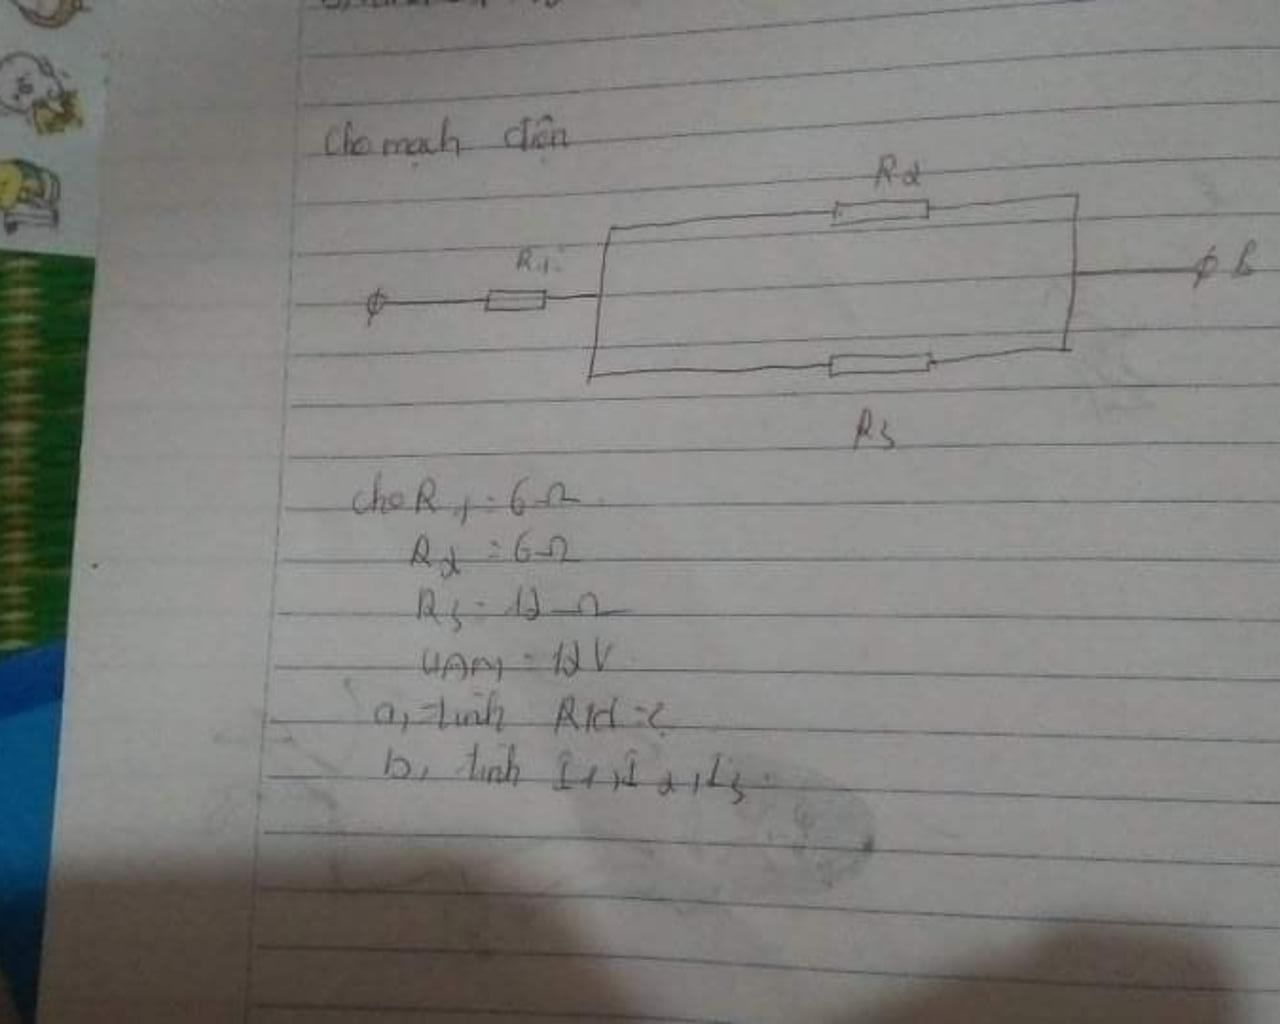 Cho mạch điện
R2
R1
B
R3
cho R1 = 6 Ω
R2 = 6 Ω
R3 = 12 Ω
= 12 V
a, tính Rtđ = ?
b, tính I1, I2, I3.